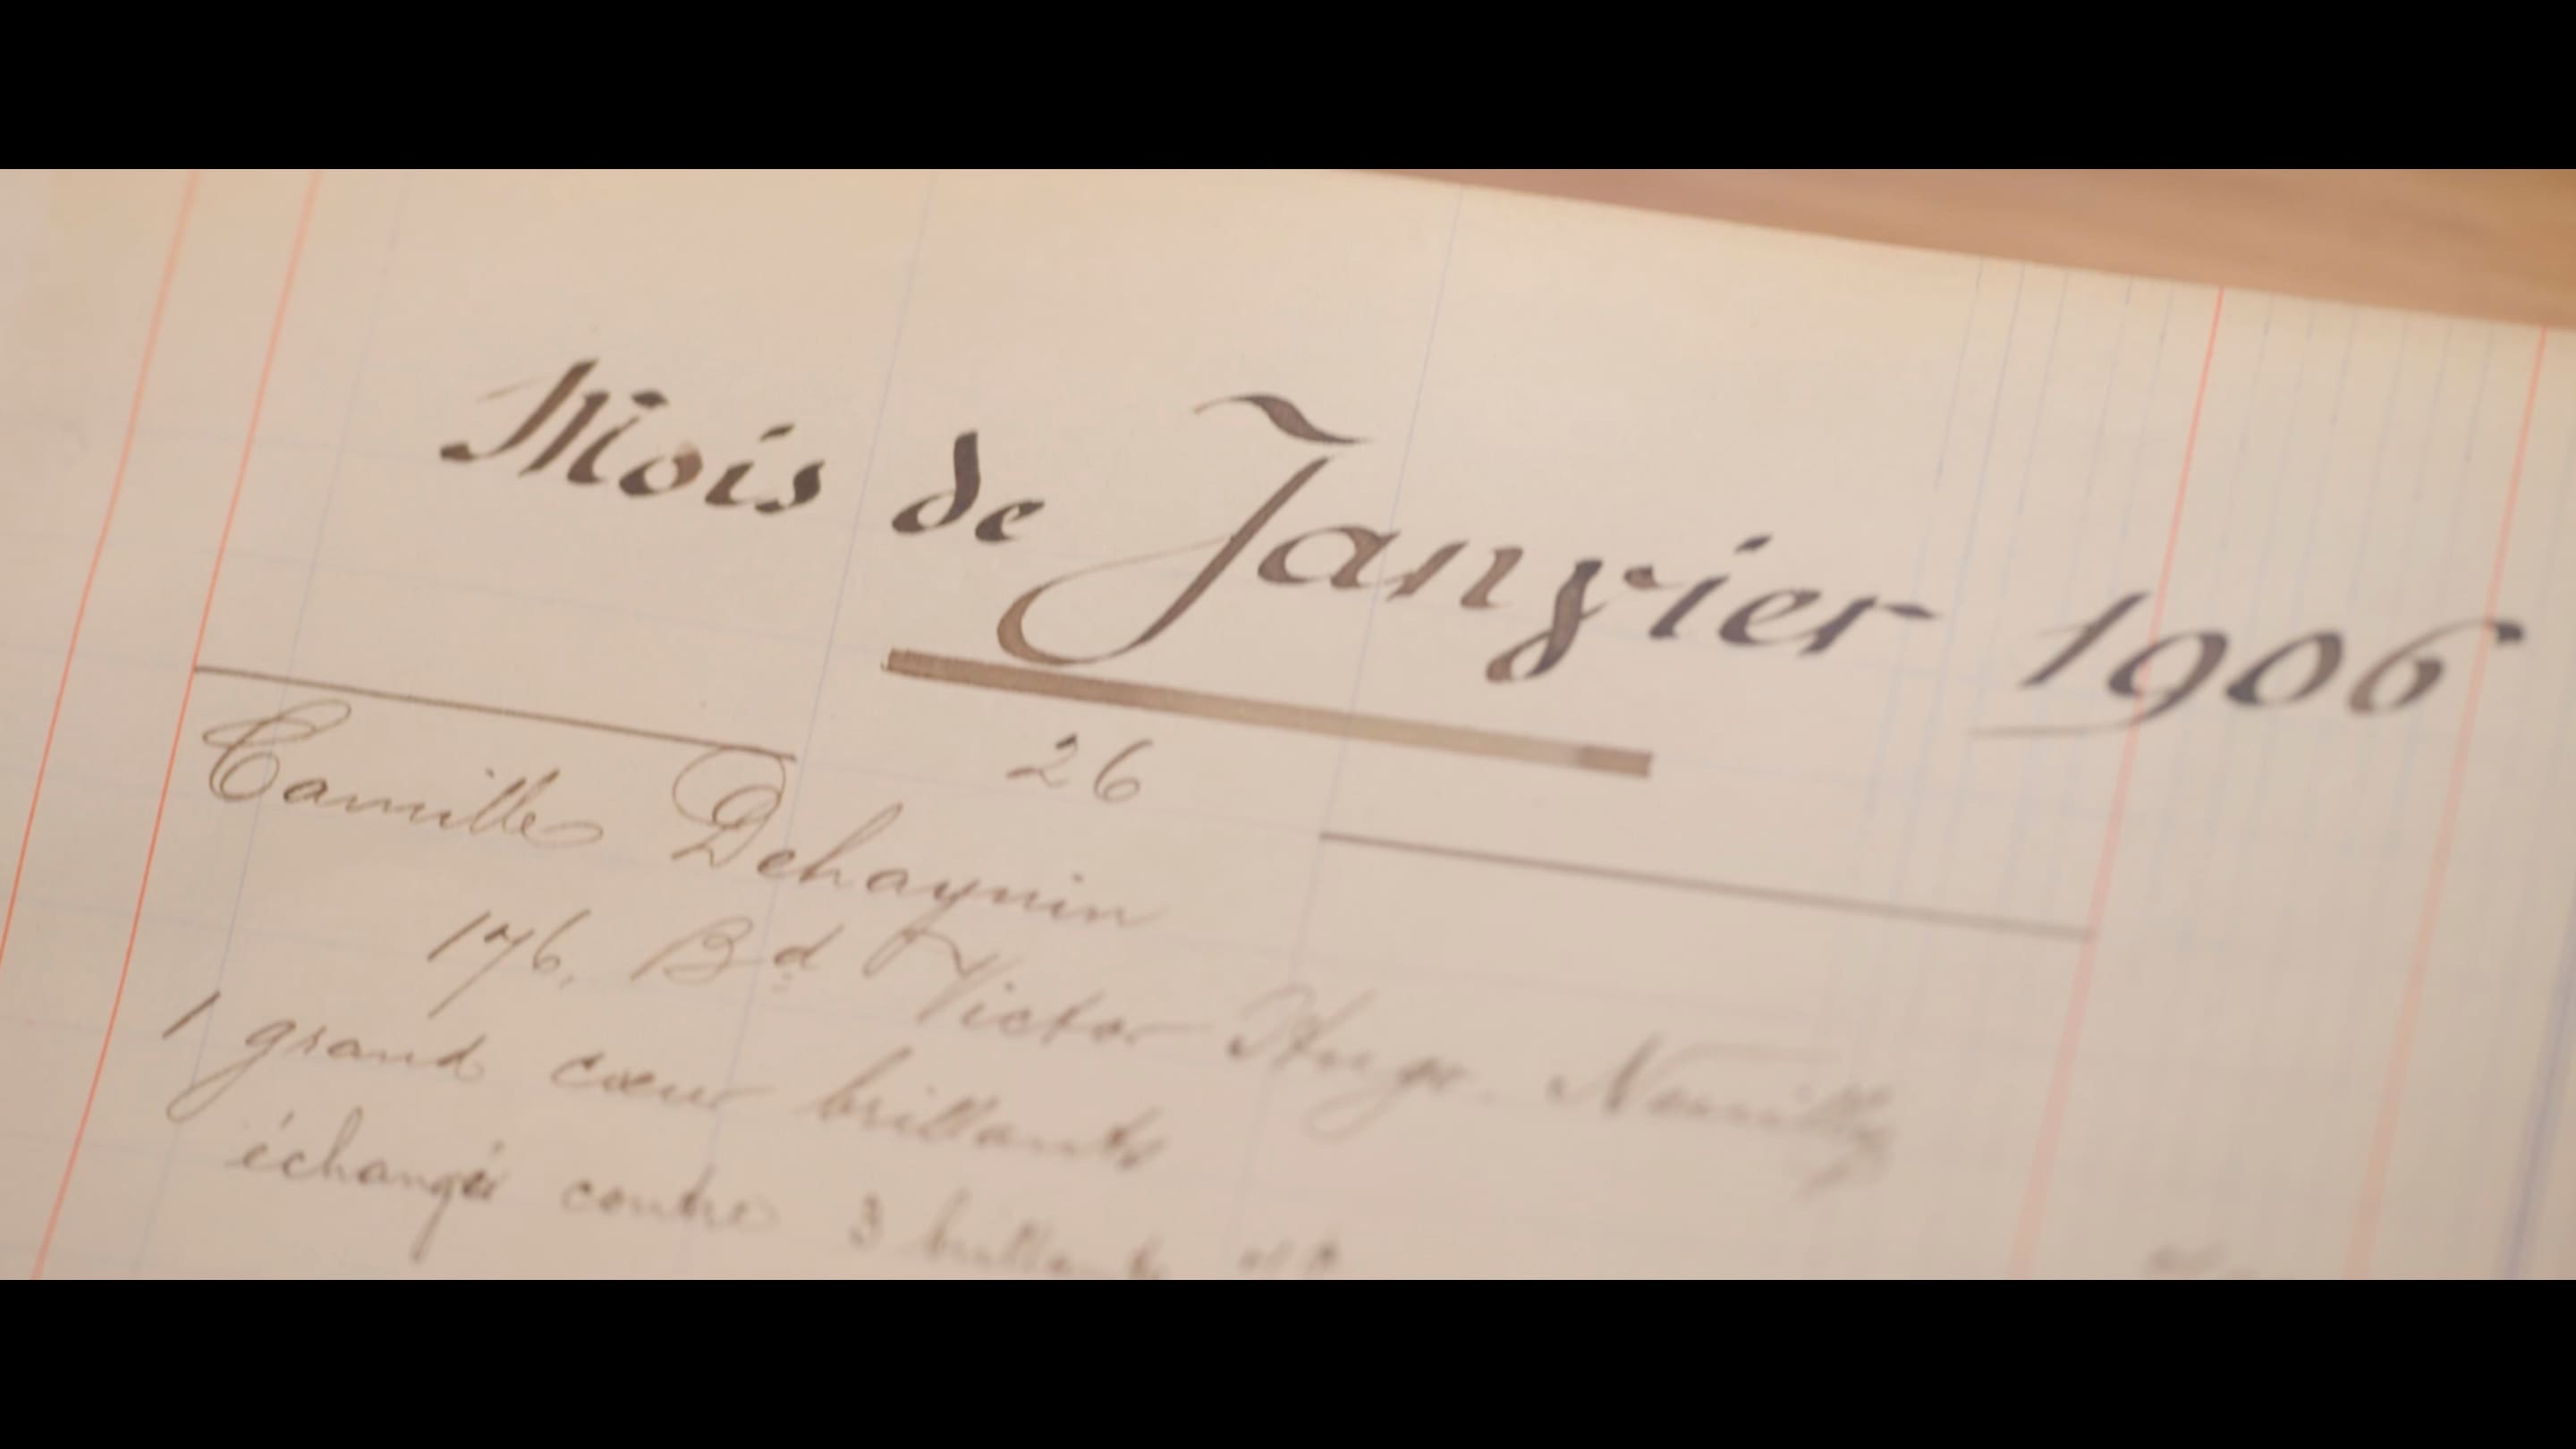 Mois de Janvier 1906
26
Camille Dehaynin
176, Bd Victor Hugo. Neuilly
1 grand cœur brillants
échangé contre 3 brillants